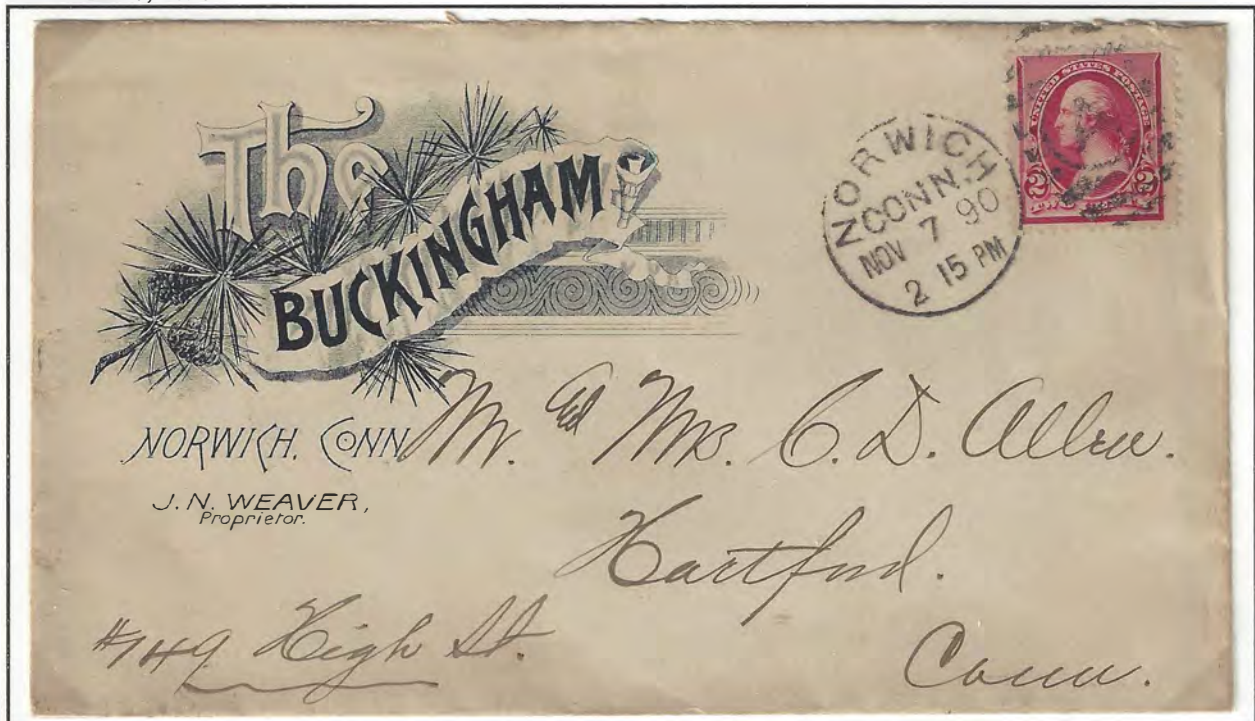 The
BUCKINGHAM
NORWICH, CONN.
J. N. WEAVER,
Proprietor.
NORWICH
CONN.
NOV 7 90
2 15 PM
UNITED STATES POSTAGE
2 2
Mr. and Mrs. C. D. Allen.
Hartford.
Conn.
#149 High St.